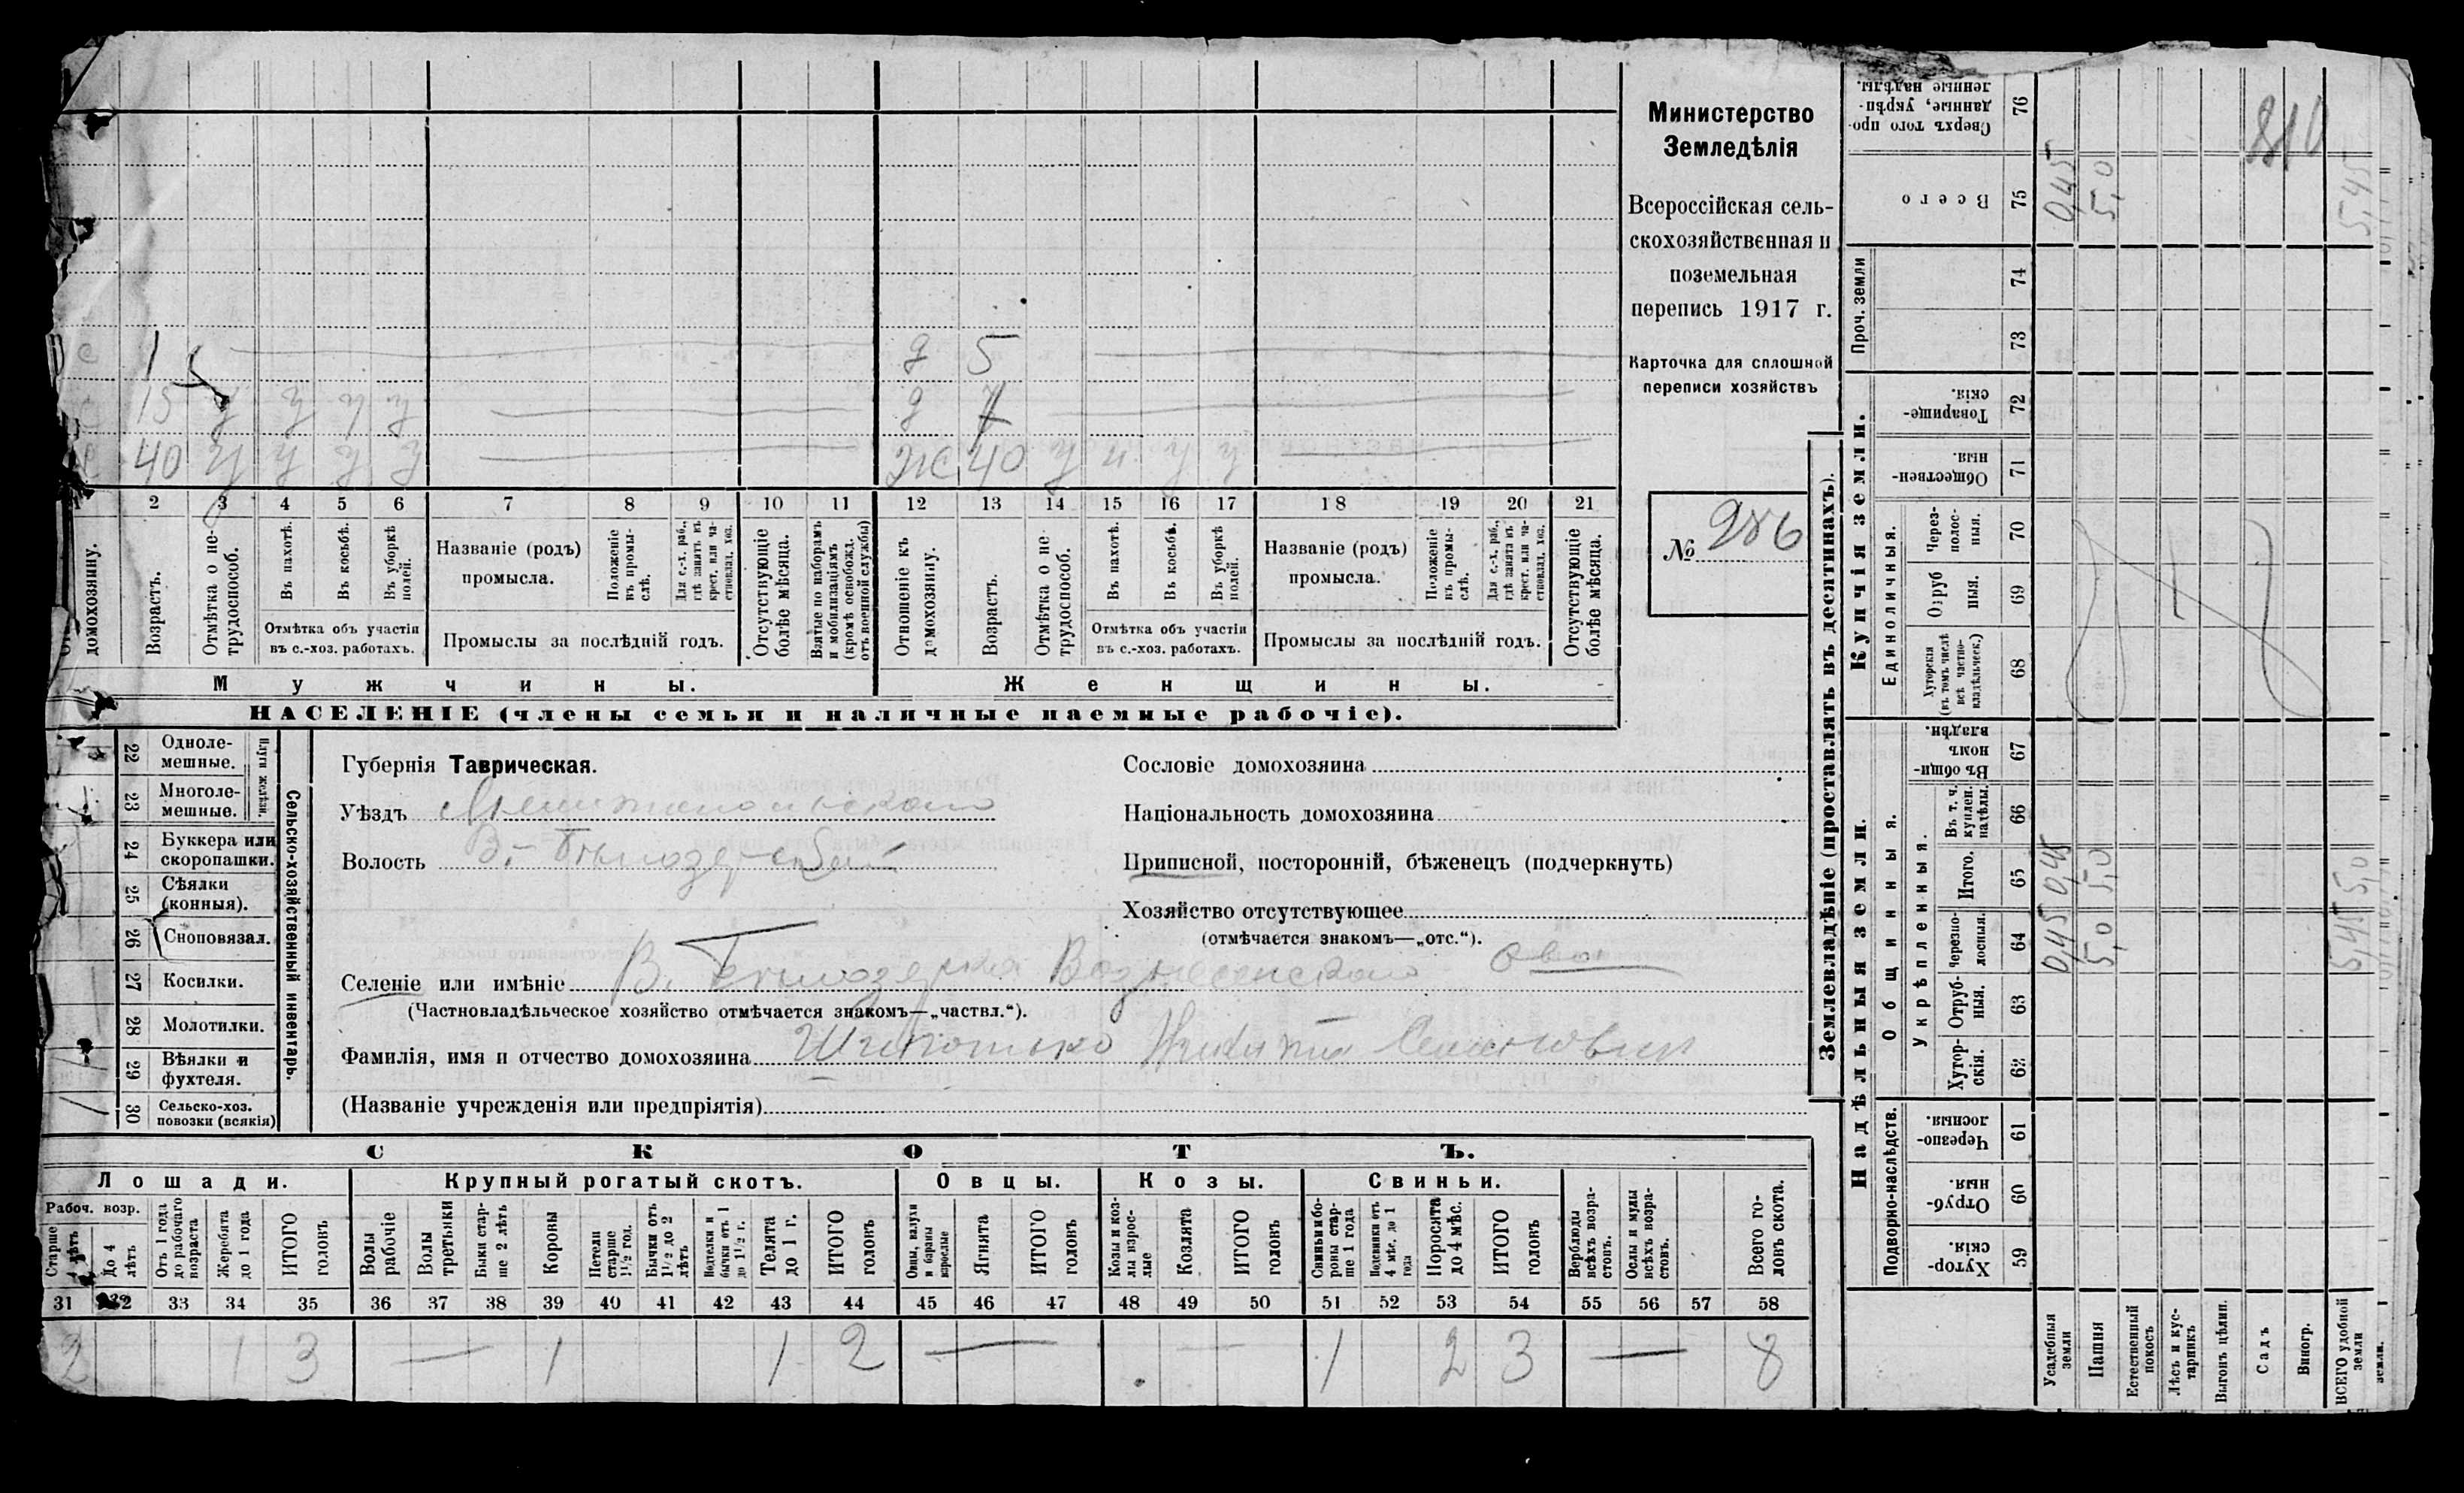 с 1 д 5
15 у у у у д 7
40 у у у у Ж 40 у у у у
2 3 4 5 6 7 8 9 10 11 12 13 14 15 16 17 18 19 20 21
домохозяину.
Возрастъ.
Отмѣтка о не-
трудоспособ.
Въ пахотѣ.
Въ косьбѣ.
Въ уборкѣ
полей.
Отмѣтка объ участіи
въ с.-хоз. работахъ.
Названіе (родъ)
промысла.
Положеніе
въ промы-
слѣ.
Для с.-х. раб.,
гдѣ занятъ въ
крест. или ча-
стновлад. хоз.
Промыслы за послѣдній годъ.
Отсутствующіе
болѣе мѣсяца.
Взятые по наборамъ
и мобилизаціямъ
(кромѣ освобожд.
отъ военной службы)
Отношеніе къ
домохозяину.
Возрастъ.
Отмѣтка о не-
трудоспособ.
Въ пахотѣ.
Въ косьбѣ.
Въ уборкѣ
полей.
Отмѣтка объ участіи
въ с.-хоз. работахъ.
Названіе (родъ)
промысла.
Положеніе
въ промы-
слѣ.
Для с.-х. раб.,
гдѣ занята въ
крест. или ча-
стновлад. хоз.
Промыслы за послѣдній годъ.
Отсутствующіе
болѣе мѣсяца.
Мужчины. Женщины.
НАСЕЛЕНІЕ (члены семьи и наличные наемные рабочіе).
Министерство
Земледѣлія
Всероссійская сель-
скохозяйственная и
поземельная
перепись 1917 г.
Карточка для сплошной
переписи хозяйствъ
№ 286
22 Одноле-
мешные.
23 Многоле-
мешные.
Плуги желѣзн.
24 Буккера или
скоропашки.
25 Сѣялки
(конныя).
26 Сноповязал.
27 Косилки.
28 Молотилки.
29 Вѣялки и
фухтеля.
1 30 Сельско-хоз.
повозки (всякія)
Сельско-хозяйственный инвентарь.
Губернія Таврическая.
Уѣздъ Мелитопольскаго
Волость В.-Бѣлозерской
Сословіе домохозяина
Національность домохозяина
Приписной, посторонній, бѣженецъ (подчеркнуть)
Хозяйство отсутствующее
(отмѣчается знакомъ—„отс.“).
Селеніе или имѣніе В. Бѣлозерка Вознесенскаго о-ва
(Частновладѣльческое хозяйство отмѣчается знакомъ—„частвл.“).
Фамилія, имя и отчество домохозяина Никита Семенович
(Названіе учрежденія или предпріятія)
СКОТЪ.
Лошади. Крупный рогатый скотъ. Овцы. Козы. Свиньи.
Рабоч. возр.
Старше
4 лѣтъ
До 4
лѣтъ
Отъ 1 года
до рабочаго
возраста
Жеребята
до 1 года
ИТОГО
головъ
Волы
рабочіе
Волы
третьяки
Быки стар-
ше 2 лѣтъ
Коровы
Нетели
старше
1½ год.
Бычки отъ
1½ до 2
лѣтъ
Неделки и
бычки отъ 1
до 1½ г.
Телята
до 1 г.
ИТОГО
головъ
Овцы, валухи
и бараны
взрослые
Ягнята
ИТОГО
головъ
Козы и коз-
лы взрос-
лые
Козлята
ИТОГО
головъ
Свиньи и бо-
ровы стар-
ше 1 года
Подсвинки отъ
4 мѣс. до 1
года
Поросята
до 4 мѣс.
ИТОГО
головъ
Верблюды
всѣхъ возра-
стовъ.
Ослы и мулы
всѣхъ возра-
стовъ.
Всего го-
ловъ скота.
31 32 33 34 35 36 37 38 39 40 41 42 43 44 45 46 47 48 49 50 51 52 53 54 55 56 57 58
2 1 3 — 1 1 2 — — 1 2 3 — 8
Землевладѣніе (проставлять въ десятинахъ).
Надѣльныя земли. Купчія земли. Проч. земли
Подворно-наслѣдств.
Общинныя.
Укрѣпленныя.
Единоличныя.
Хутор-
скія.
59
Отруб-
ныя.
60
Черезпо-
лосныя.
61
Хутор-
скія.
62
Отруб-
ныя.
63
Черезпо-
лосныя.
64
Итого.
65
Въ т. ч.
куплен.
надѣлы.
66
Въ общи-
номъ
владѣн.
67
Хуторскія
(въ томъ числѣ
всѣ частно-
владѣльческ.)
68
Отруб
ныя.
69
Через-
полос-
ныя.
70
Обществен-
ныя.
71
Товарище-
скія.
72
73
74
Всего
75
Сверхъ того про-
данные, укрѣп-
ленные надѣлы.
76
Усадебныя
земли
0,45 0,45 0,45
Пашня
5,0 5,0 5,0
Естественный
покосъ
Лѣсъ и кус-
тарникъ
Выгонъ цѣлин.
Садъ
Виногр.
ВСЕГО удобной
земли
5,45 5,0 5,45
земли.